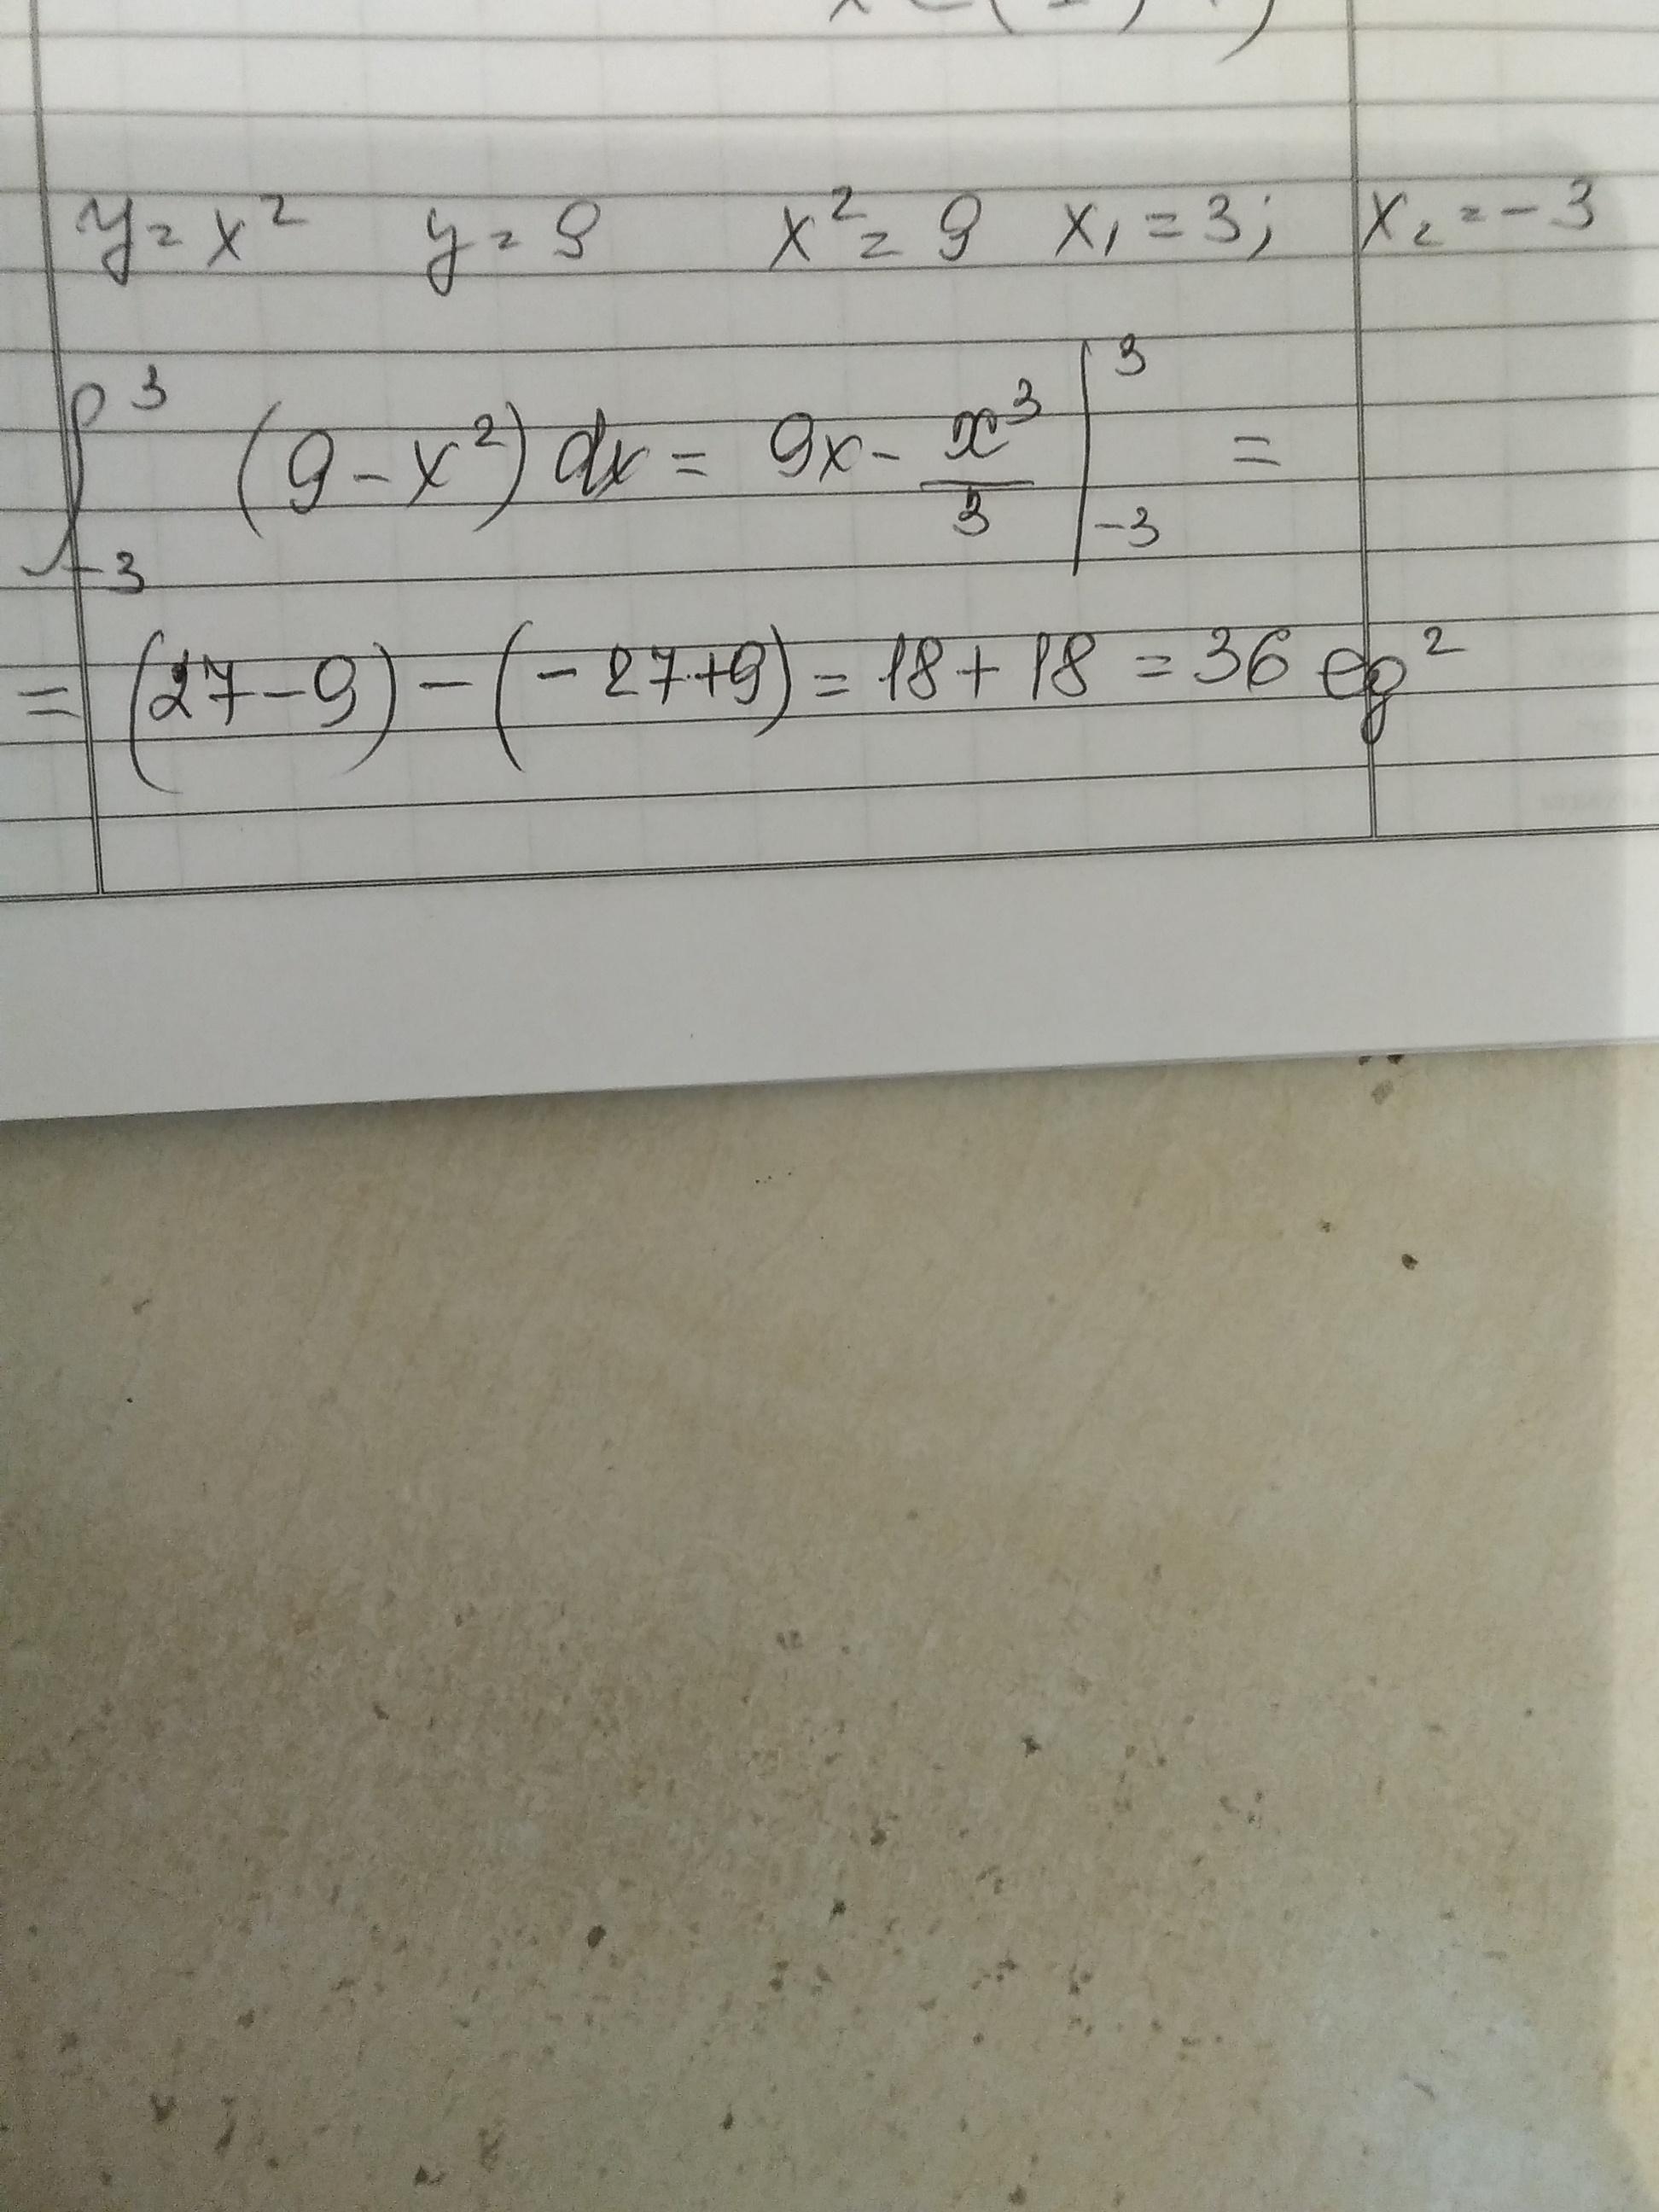 y = x² y = 9 x² = 9 x₁ = 3; x₂ = -3
∫₋₃³ (9 - x²) dx = 9x - x³/3 |₋₃³ =
= (27 - 9) - (-27 + 9) = 18 + 18 = 36 ед²